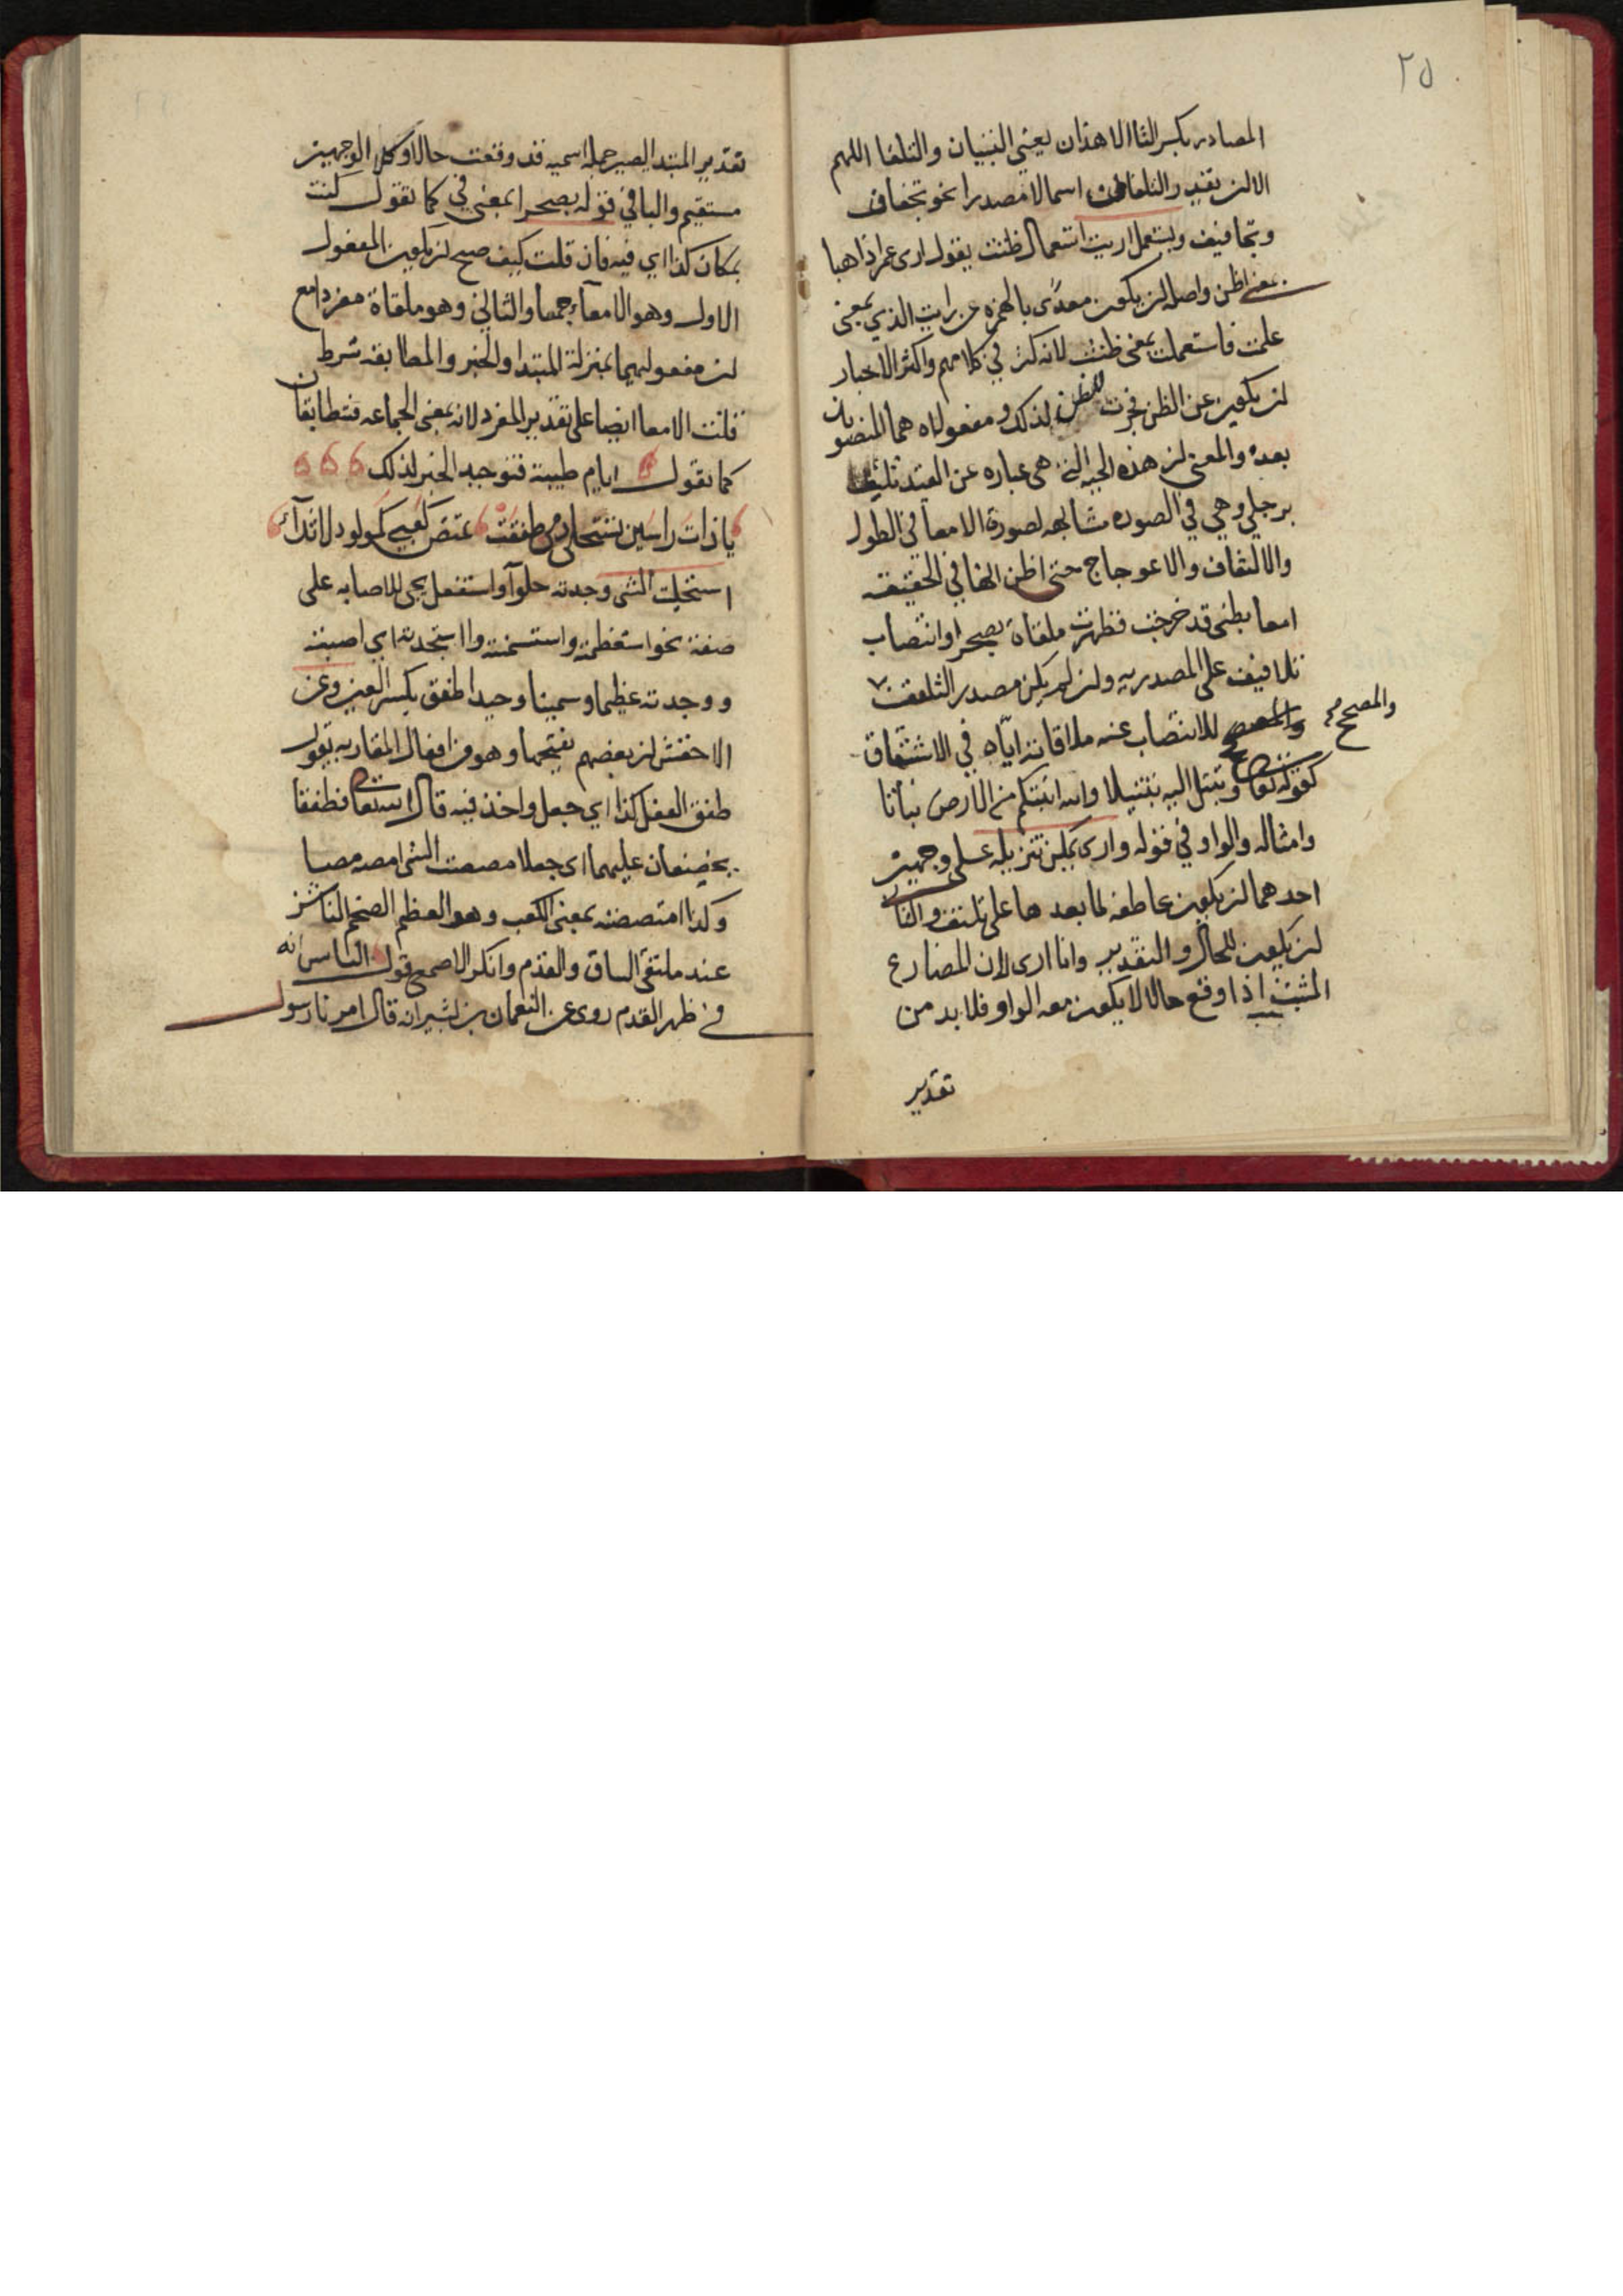 ٢٥
المصادر بكسر التا الا هذان يعني التبيان والتلقا اللهم
الا لن يقدر التلفاف اسما لا مصدرا نحو تجفاف
وتجافيف ويستعمل اريت استعمال ظننت يقول ارى عمرا ذاهبا
بمعنى اظن واصله لن يكون معدى بالهمزه عن رايت الذي بمعنى
علمت فاستعملت بمعنى ظننت لانه كثر في كلامهم واكثر الاخبار
لن يكون عن الظن فجرت للظن لذلك ومفعولاه هما المنصوبان
بعده والمعنى لن هذه الحيه التي هي عباره عن القيد
برجلي وهي في الصوره مشابهه لصورة الامعا في الطول
والالتفاف والاعوجاج حتى اظن انها في الحقيقه
امعا بطني قد خرجت فظهرت ملقاة بصحرا وانتصاب
تلافيف على المصدريه ولن لم يكن مصدر التلفف
والمصحح للانتصاب عنه ملاقاته اياه في الاشتقاق
كقوله تعالى وتبتل اليه تبتيلا والله انبتكم من الارض نباتا
وامثاله والواو في قوله وارى يمكن تنزيله على وجهين
احدهما لن يكون عاطفه لما بعدها على تلتف والثاني
لن يكون للحال والتقدير وانا ارى لان المضارع
المثبت اذا وقع حالا لا يكون معه الواو فلا بد من
تقدير
والمصحح
تقدير المبتدا ليصير جمله اسميه قد وقعت حالا وكلا الوجهين
مستقيم والبا في قوله بصحرا بمعنى في كما تقول كنت
بمكان كذا اي فيه فان قلت كيف صح لن يكون المفعول
الاول وهو الامعاء جمعا والثاني وهو ملقاة مفردا مع
لن مفعوليهما بمنزلة المبتدا والخبر والمطابقه شرط
قلت الامعا ايضا على تقدير المفرد لانه بمعنى الجماعه فتطابقان
كما تقول ايام طيبة فتوجيه الخبر لذلك
يا ذات راسين تستحلى دمي طفقت تمتص كعبي كمولود لاثداء
استحليت الشى وجدته حلوا واستفعل يجي للاصابه على
صفة نحو استعظمته واستسمنته واستجدته اي اصبته
ووجدته عظيما وسمينا وجيدا طفق بكسر العين وعن
الاخفش لن بعضهم يفتحها وهو من افعال المقاربه تقول
طفق الفعل كذا اي جعل واخذ فيه قال الله تعالى فطفقا
يخصفان عليهما اى جعلا مصصت الشى امصه مصا
وكذا امتصصته بمعنى الكعب وهو العظم الضخم الناشز
عند ملتقى الساق والقدم وانكر الاصمعي قول الناس انه
في ظهر القدم روى عن النعمان بن بشير انه قال امرنا رسول